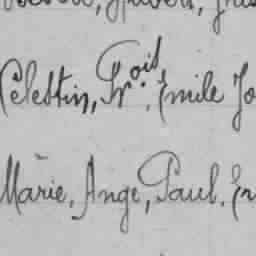 Célestin, Fr.ois, Emile Jo
Marie, Ange, Paul, Er